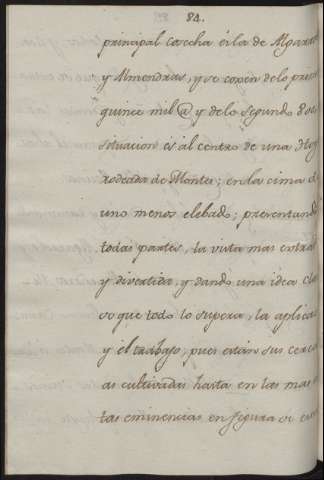 84.
principal cosecha es la de Algarro
y Almendras, y se cogen de lo prim
quince mil @ y de lo segundo 8 oc
situacion es al centro de una Hoy
rodeada de Montes; en la cima d
uno menos elebado; presentando
todas partes, la vista mas estra
y divertida, y dando una idea cla
so que todo lo supera, la aplica
y el trabajo, pues estan sus cerca
as cultivadas hasta en las mas
tas eminencias en figura de